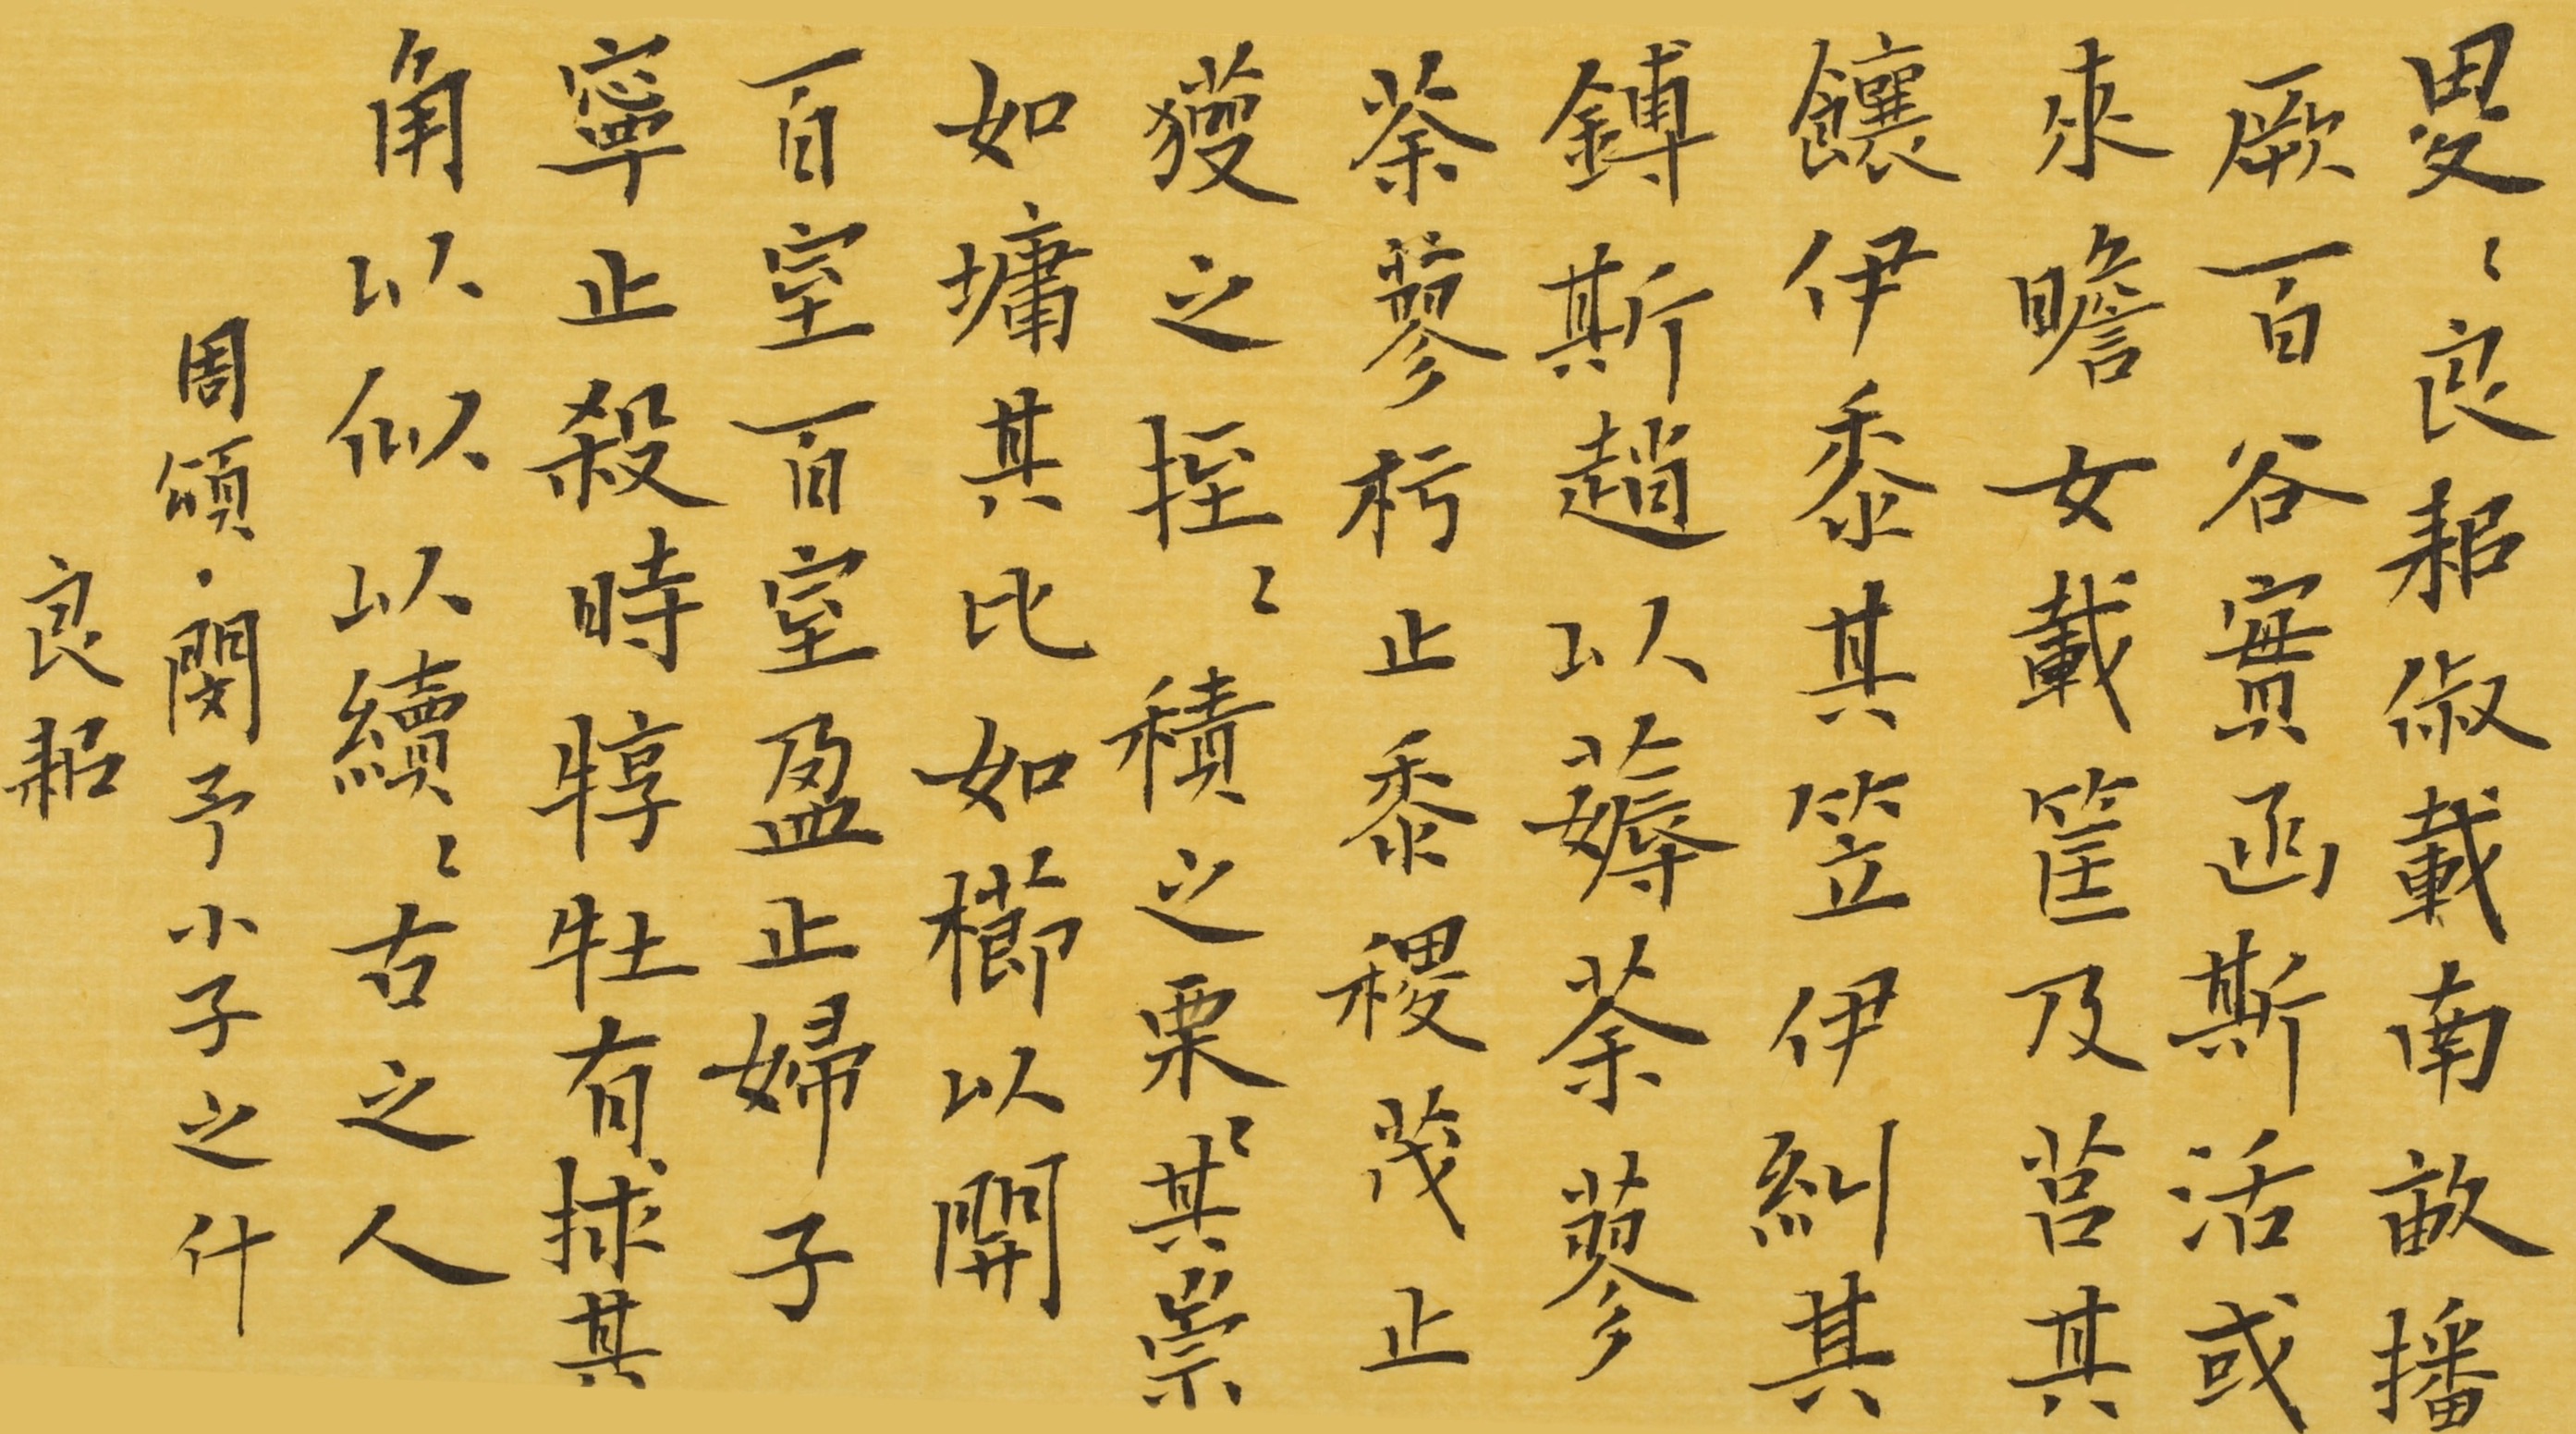 畟〻良耜俶載南畝播
厥百谷實函斯活或
來瞻女載筐及莒其
饟伊黍其笠伊糾其
鎛斯趙以薅荼蓼
荼蓼朽止黍稷茂止
獲之挃〻積之栗〻其崇
如墉其比如櫛以開
百室百室盈止婦子
寧止殺時犉牡有捄其
角以似以續〻古之人
周頌·閔予小子之什
良耜